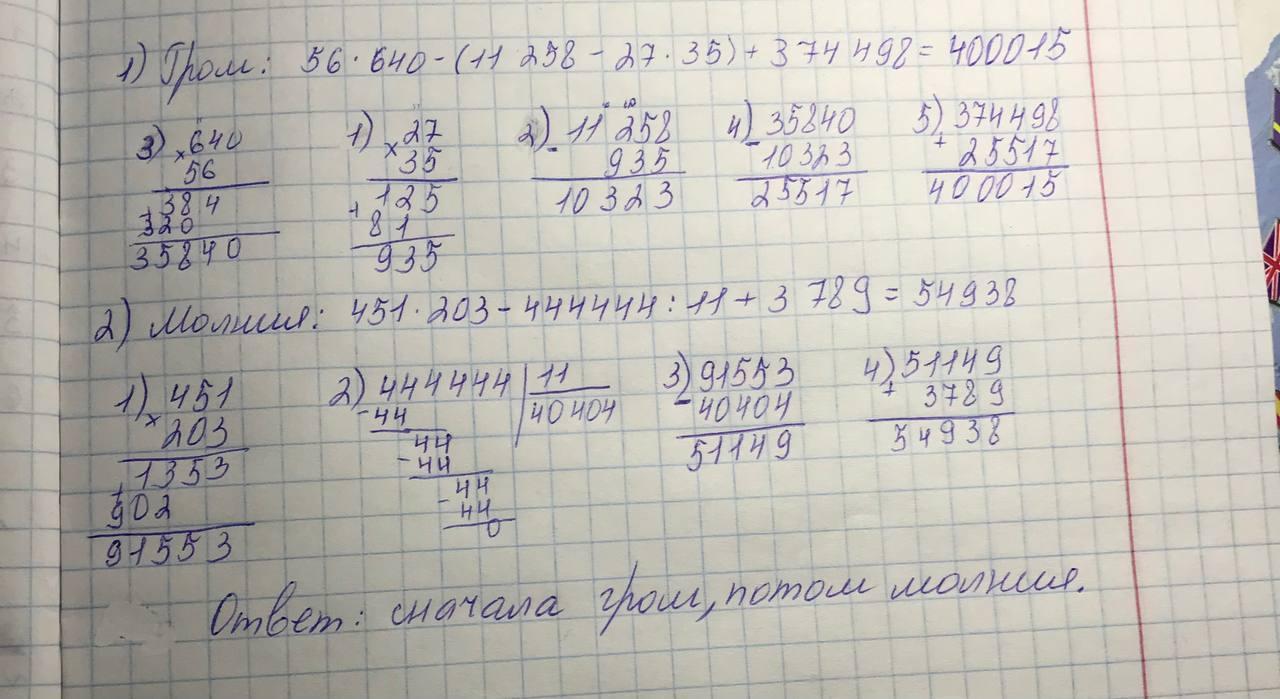 1) Гром: 56 · 640 - (11 258 - 27 · 35) + 374 498 = 400015
3) × 640
56
+ 384
320
35840
1) × 27
35
+ 125
81
935
2) - 11 258
935
10 323
4) - 35840
10323
25517
5) + 374498
25517
400015
2) Молния: 451 · 203 - 444444 : 11 + 3 789 = 54938
1) × 451
203
+ 1353
902
91553
2) 444444 | 11
- 44 40404
44
- 44
44
- 44
0
3) - 91553
40404
51149
4) + 51149
3789
54938
Ответ: сначала гром, потом молния.